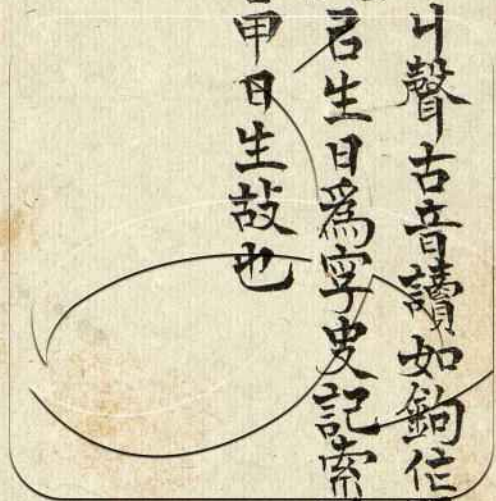 丩聲古音讀如鉤
君生日爲字史記索
甲日生故也